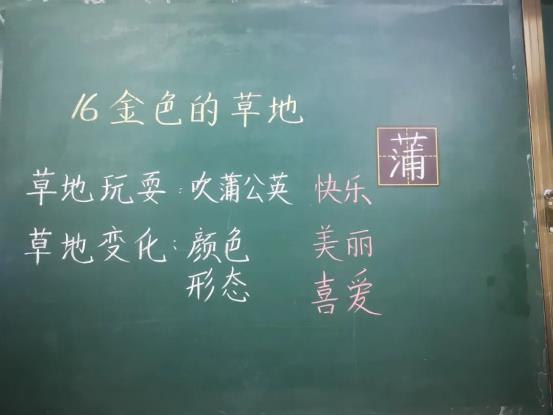 16 金色的草地
蒲
草地玩耍：吹蒲公英 快乐
草地变化：颜色 美丽
形态 喜爱